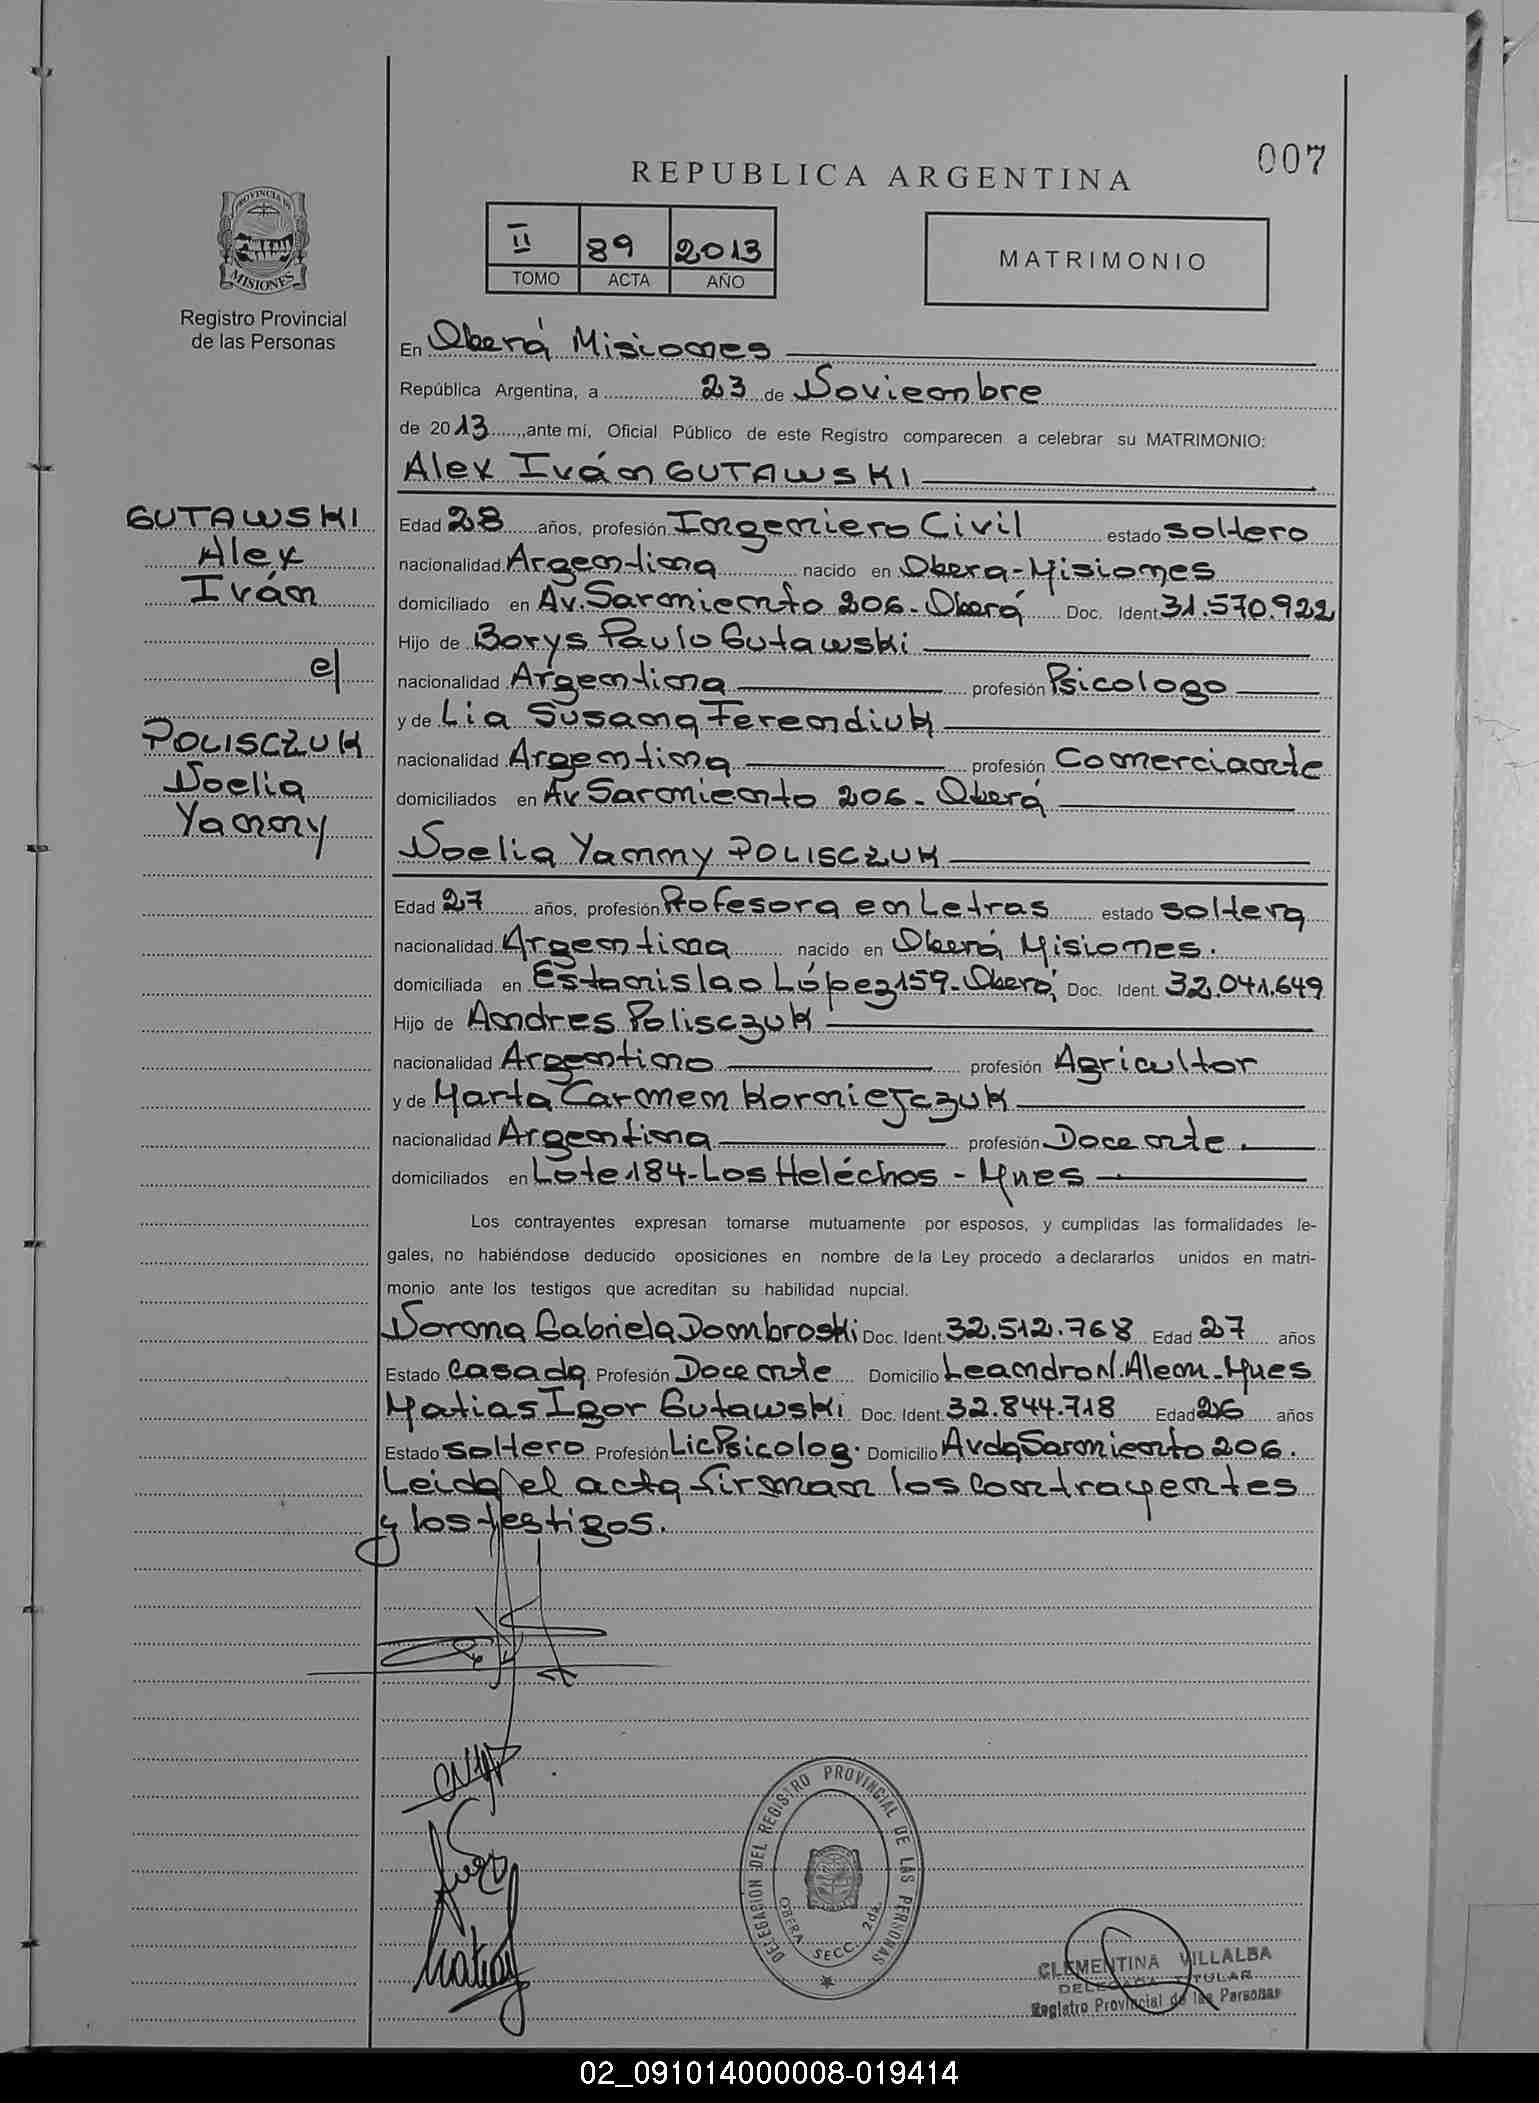 007
REPUBLICA ARGENTINA
II 89 2013
TOMO ACTA AÑO
MATRIMONIO
PROVINCIA DE
MISIONES
Registro Provincial
de las Personas
En Oberá Misiones
República Argentina, a 23 de Noviembre
de 2013, ante mí, Oficial Público de este Registro comparecen a celebrar su MATRIMONIO:
Alex Iván GUTAWSKI
GUTAWSKI
Alex
Iván
el
POLISCZUK
Noelia
Yammy
Edad 28 años, profesión Ingeniero Civil estado soltero
nacionalidad Argentina nacido en Obera-Misiones
domiciliado en Av. Sarmiento 206-Oberá Doc. Ident 31.570.922
Hijo de Borys Paulo Gutawski
nacionalidad Argentina profesión Psicologo
y de Lia Susana Ferendiuk
nacionalidad Argentina profesión Comerciante
domiciliados en Av Sarmiento 206-Oberá
Noelia Yammy POLISCZUK
Edad 27 años, profesión Profesora en Letras estado soltera
nacionalidad Argentina nacido en Oberá Misiones.
domiciliada en Estanislao López 159-Oberá, Doc. Ident. 32.041.649
Hijo de Andres Polisczuk
nacionalidad Argentino profesión Agricultor
y de Marta Carmen Korniejczuk
nacionalidad Argentina profesión Docente.
domiciliados en Lote 184-Los Heléchos - Mnes
Los contrayentes expresan tomarse mutuamente por esposos, y cumplidas las formalidades le-
gales, no habiéndose deducido oposiciones en nombre de la Ley procedo a declararlos unidos en matri-
monio ante los testigos que acreditan su habilidad nupcial.
Norma Gabriela Dombroski Doc. Ident. 32.512.768 Edad 27 años
Estado casada Profesión Docente Domicilio Leandro N. Alem-Mnes
Matias Igor Gutawski Doc. Ident. 32.844.718 Edad 26 años
Estado soltero Profesión Lic Psicolog. Domicilio Avda Sarmiento 206.
Leida el acta firman los contrayentes
y los testigos.
DELEGACION DEL REGISTRO PROVINCIAL DE LAS PERSONAS
OBERA SECC. 2da.
CLEMENTINA VILLALBA
DELEGADA TITULAR
Registro Provincial de las Personas
02_091014000008-019414